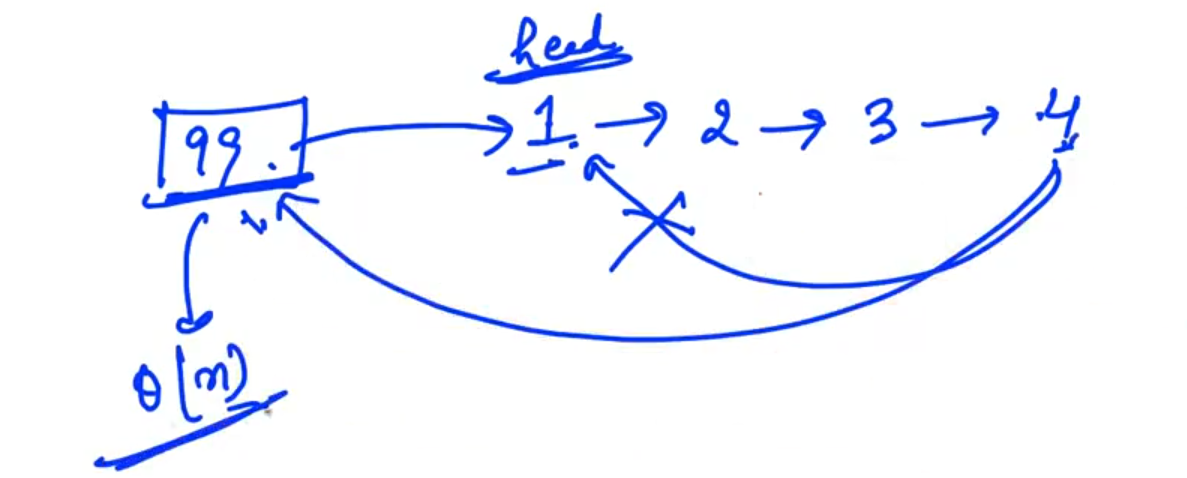 head
99 → 1 → 2 → 3 → 4
θ(n)